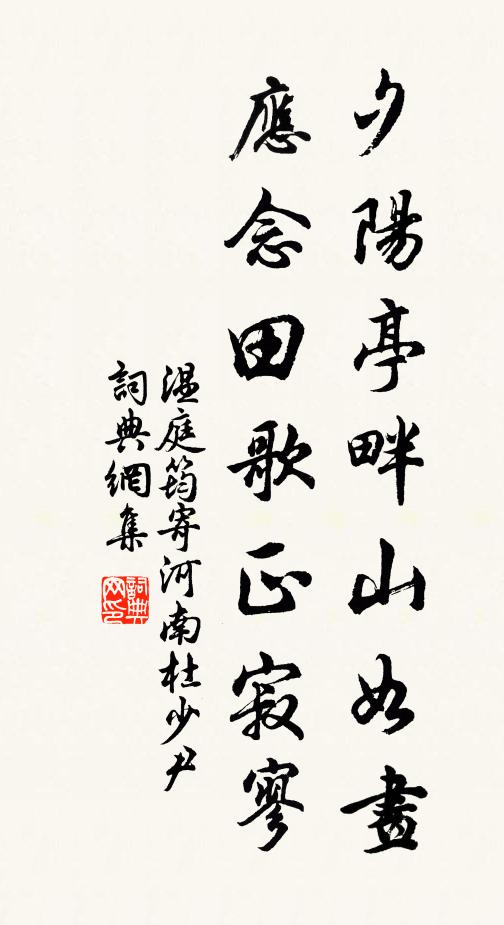 夕陽亭畔山如畫
應念田歌正寂寥
温庭筠寄河南杜少尹
詞典網集
詞典网印